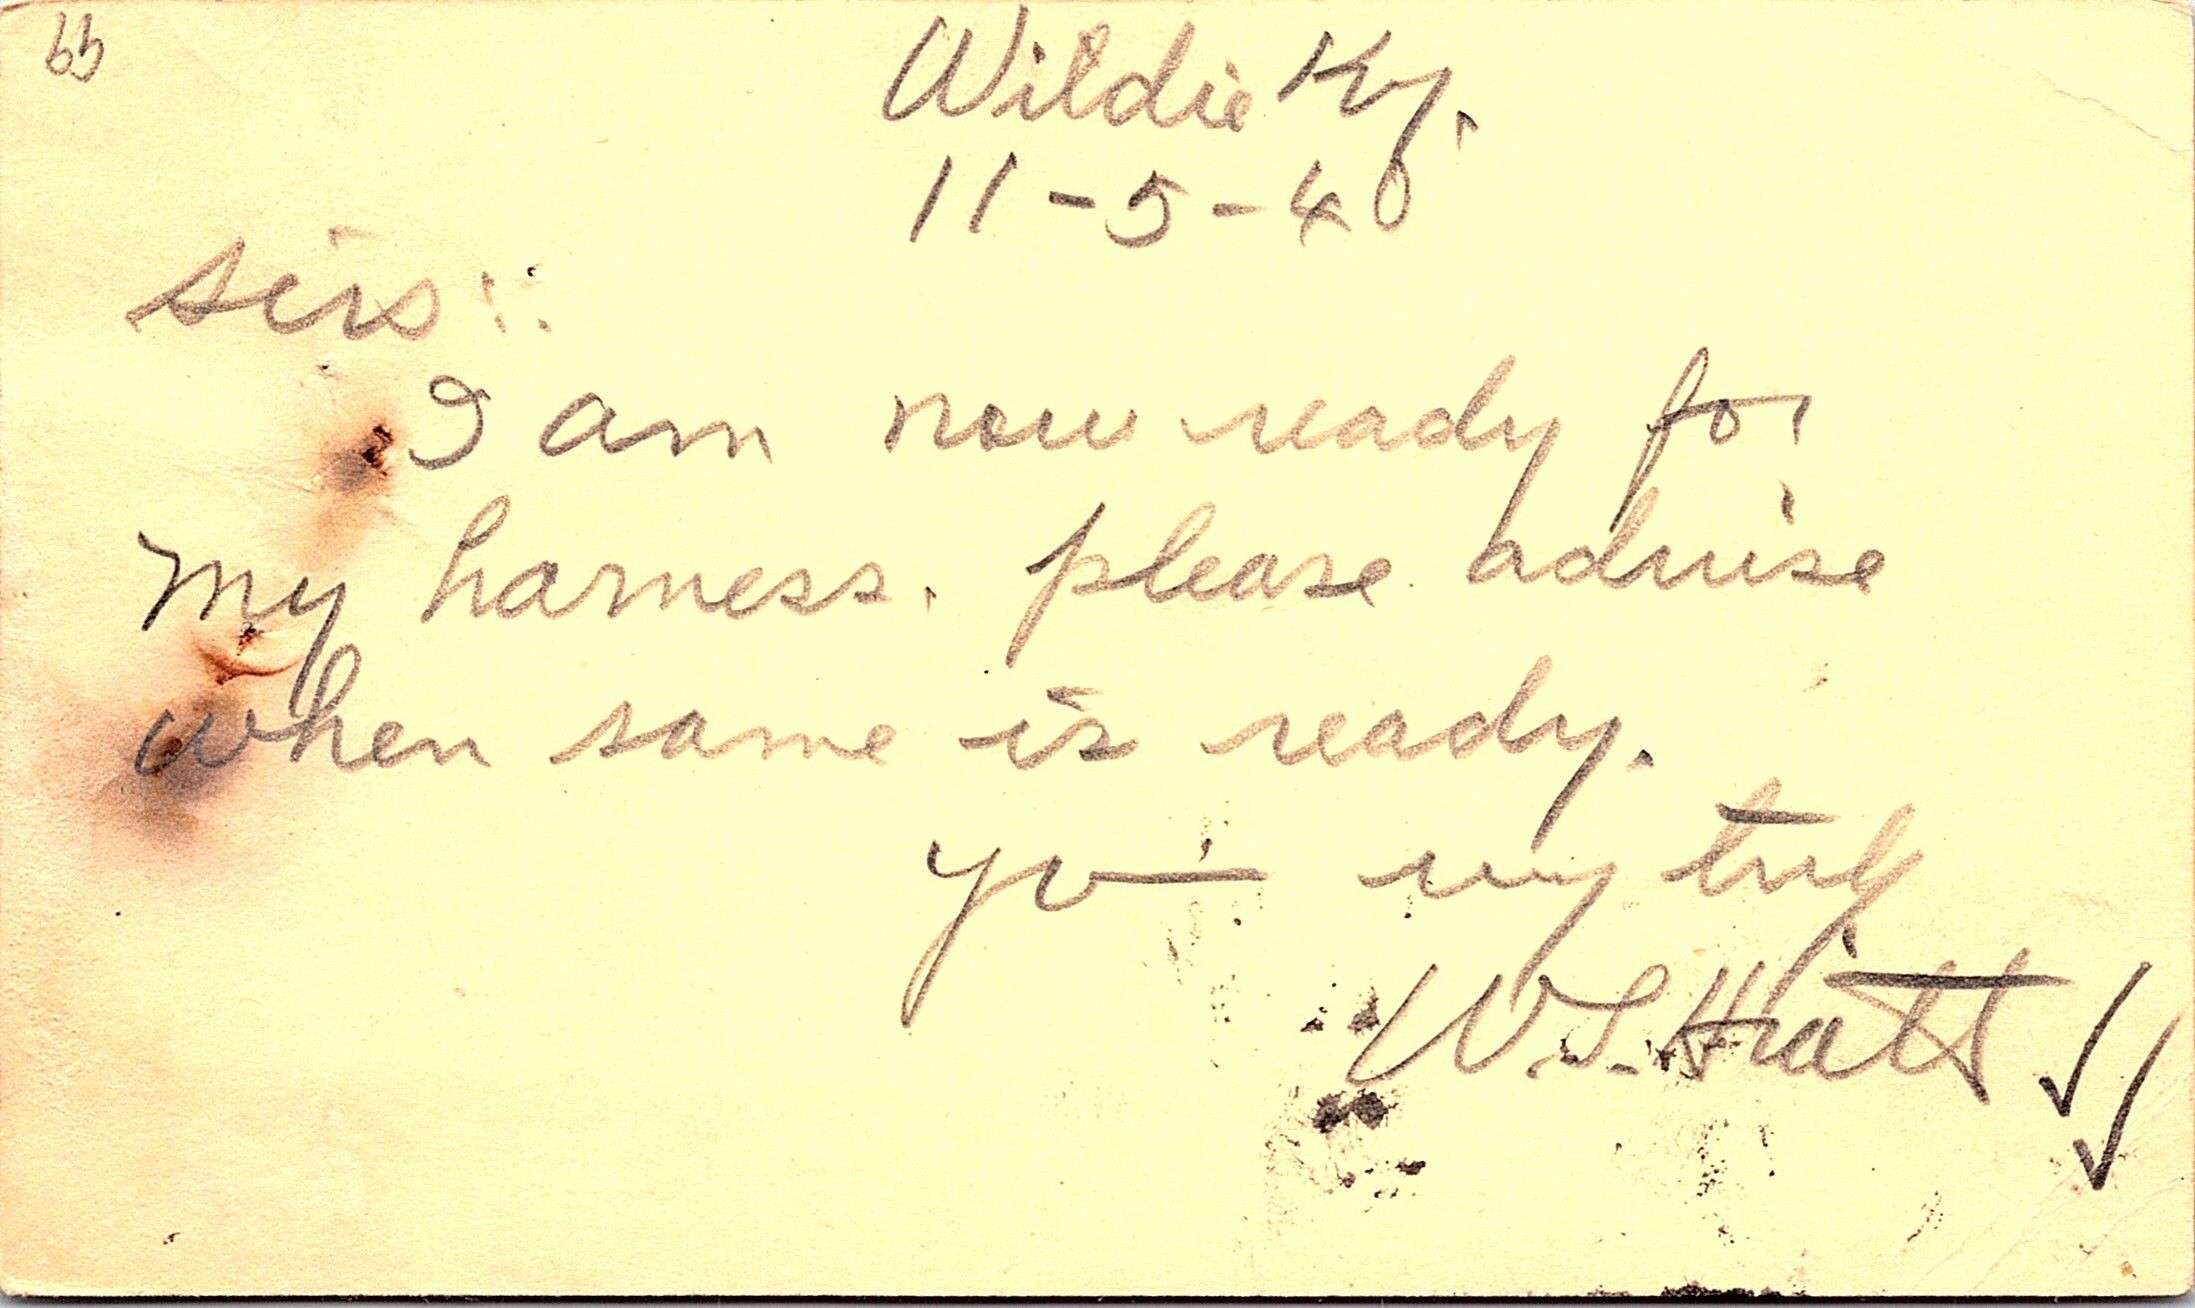 Wildie Ky.
11-5-40
sirs:.
I am now ready for
my harness. please advise
when same is ready.
yo— very truly
W.S. Hiatt